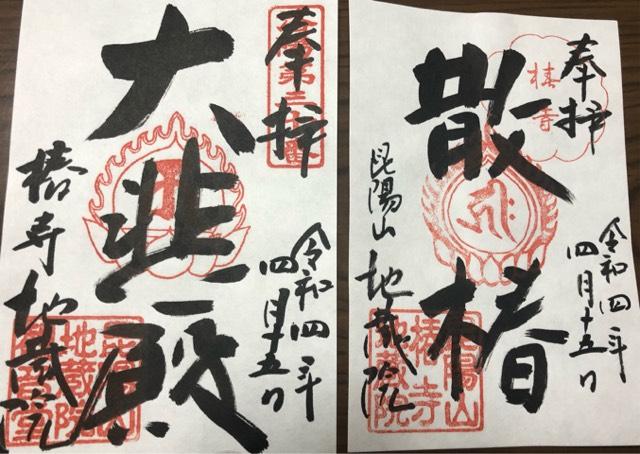 奉拝
大悲殿
椿寺 地蔵院
令和四年
四月十五日
奉拝
椿寺
散椿
昆陽山 地蔵院
令和四年
四月十五日
昆陽山
椿寺
地蔵院